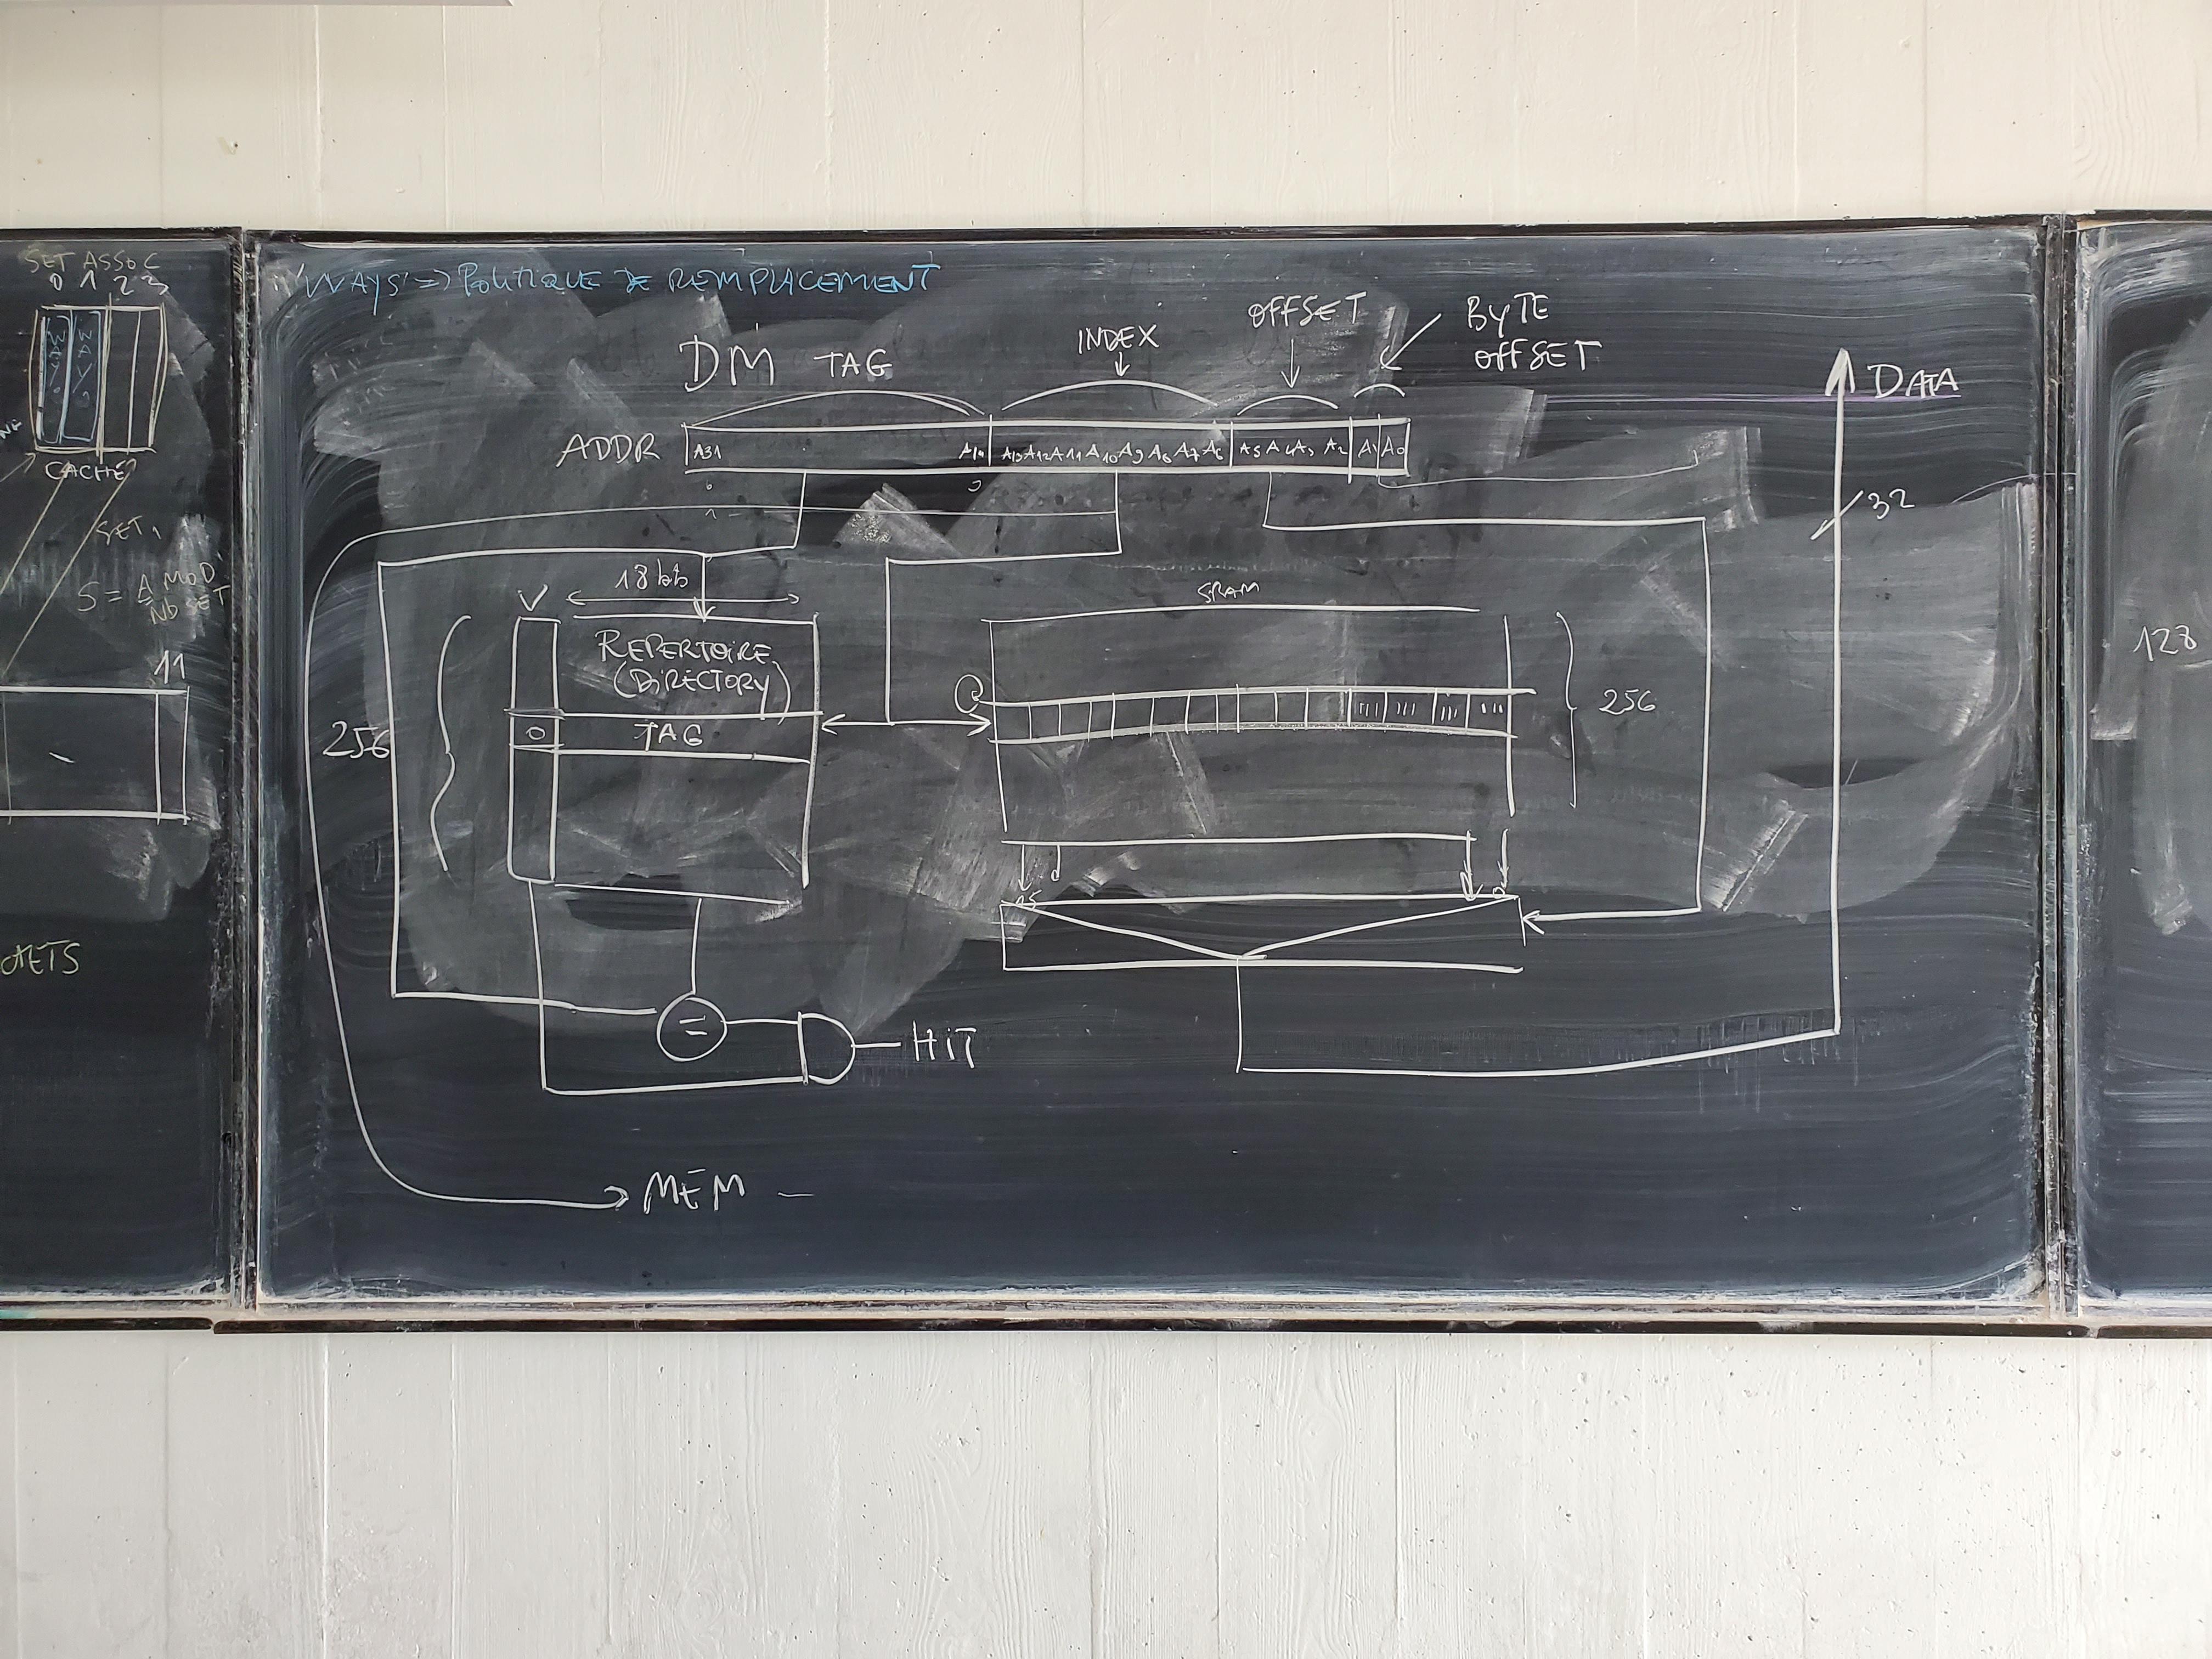 SET ASSOC
0 1 2 3
WAY 0
WAY
CACHE
SET
S = A MOD
Nb SET
11
"WAYS" => POLITIQUE DE REMPLACEMENT
DM TAG
INDEX
OFFSET
BYTE
OFFSET
ADDR
A31 A14 A13 A12 A11 A10 A9 A8 A7 A6 A5 A4 A3 A2 A1 A0
DATA
32
V
18 bits
REPERTOIRE
(DIRECTORY)
0 TAG
256
SRAM
256
15
0
=
HIT
MEM
128